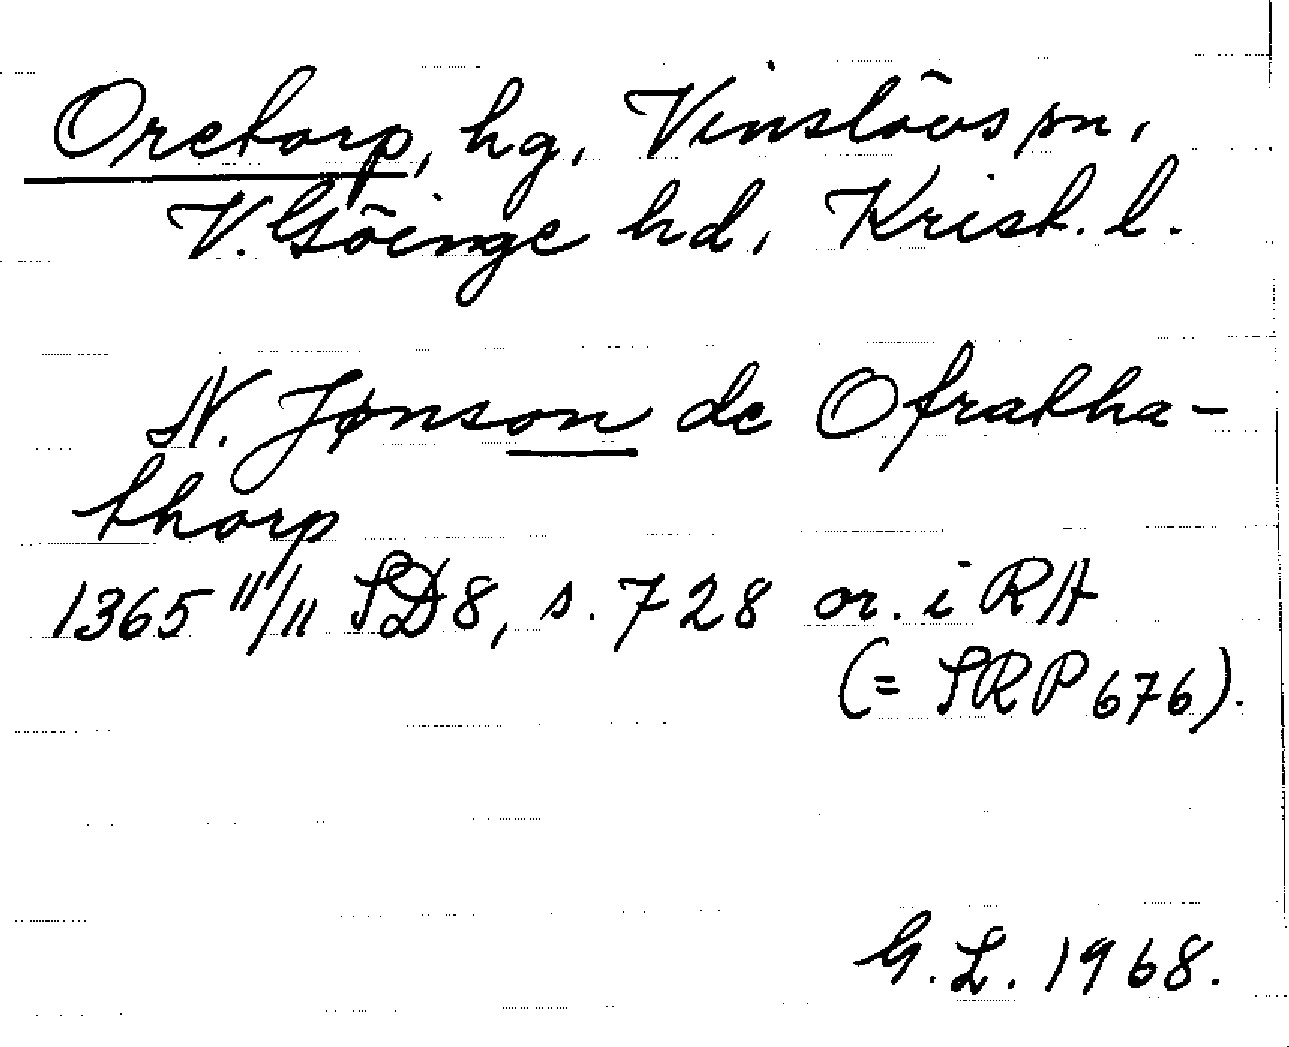 Oretorp, hg, Vinslövs sn,
V. Göinge hd, Krist. l.
N. Jønson de Ofratha-
thorp
1365 11/11 SD8, s. 728 or. i RA
(= SRP 676).
G. L. 1968.